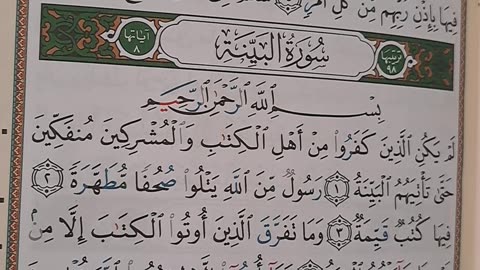 فِيهَا بِإِذْنِ رَبِّهِم مِّن كُلِّ أَمْرٍ
ترتيبها ٩٨ سُورَةُ الْبَيِّنَةِ آياتها ٨
بِسْمِ اللَّهِ الرَّحْمَٰنِ الرَّحِيمِ
لَمْ يَكُنِ الَّذِينَ كَفَرُوا مِنْ أَهْلِ الْكِتَابِ وَالْمُشْرِكِينَ مُنفَكِّينَ
حَتَّىٰ تَأْتِيَهُمُ الْبَيِّنَةُ ١ رَسُولٌ مِّنَ اللَّهِ يَتْلُوا صُحُفًا مُّطَهَّرَةً ٢
فِيهَا كُتُبٌ قَيِّمَةٌ ٣ وَمَا تَفَرَّقَ الَّذِينَ أُوتُوا الْكِتَابَ إِلَّا مِن